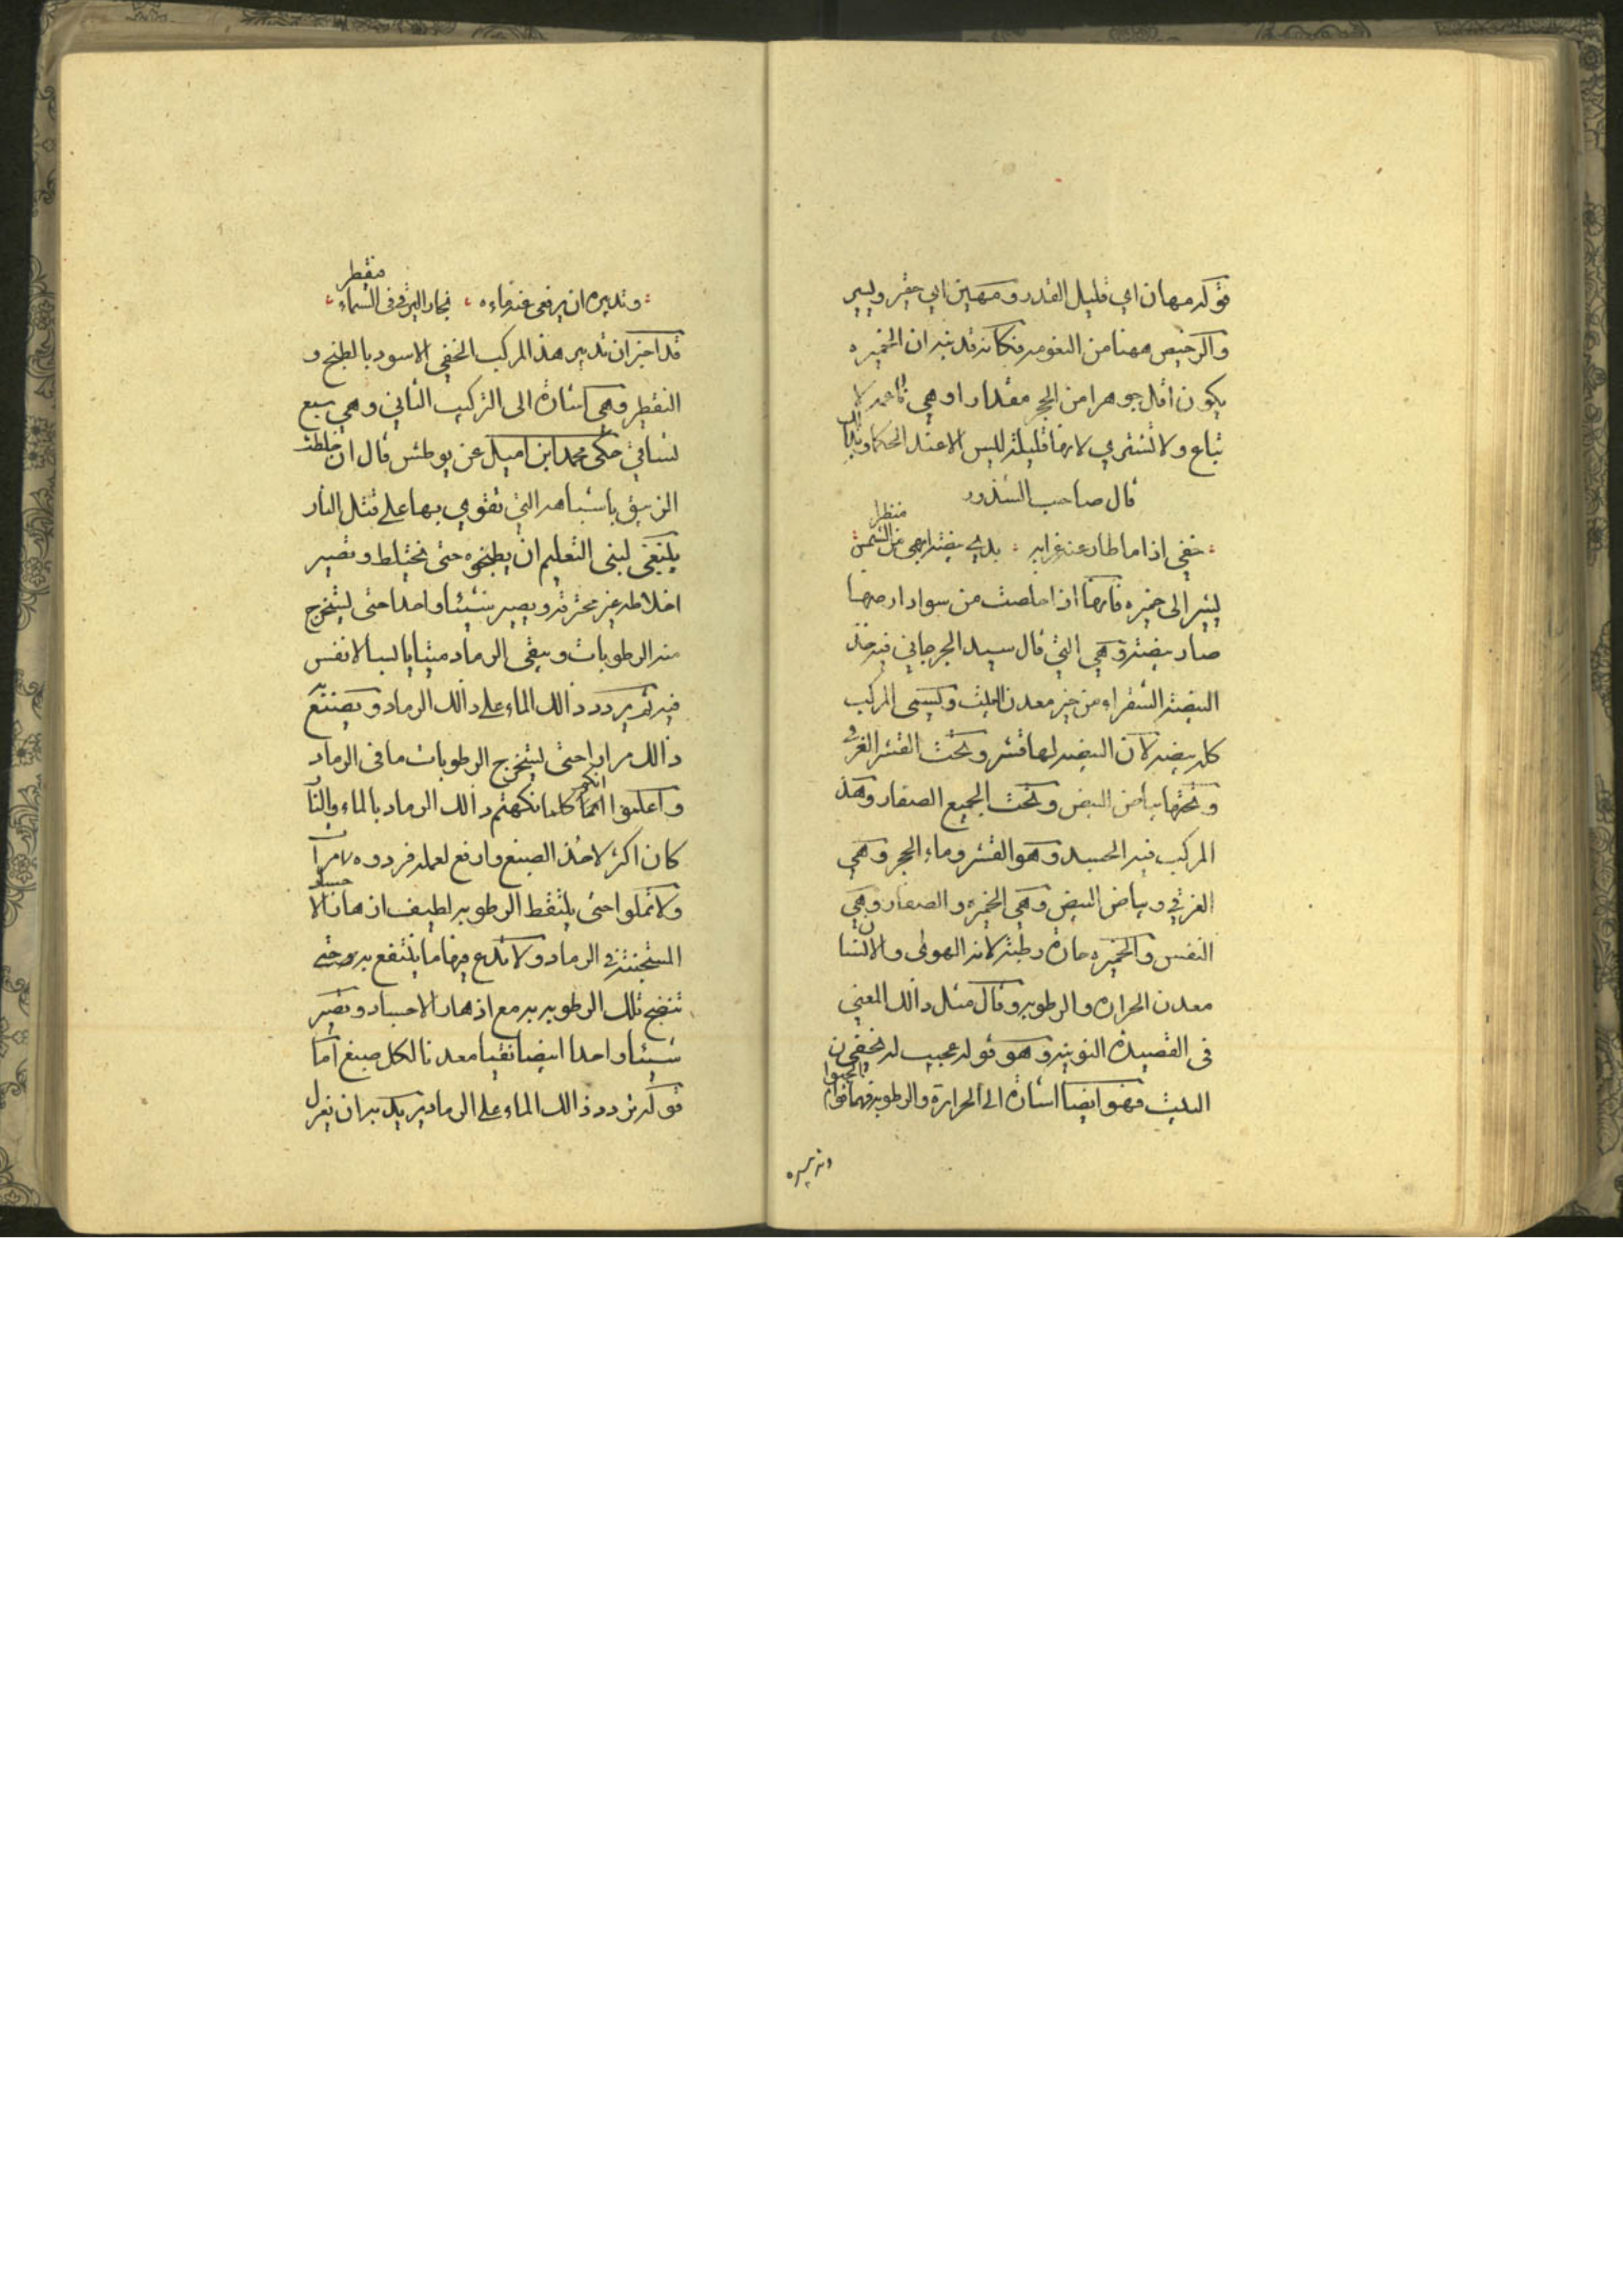 قوله مهان اي قليل القدر ومهين اي حقير ويسير
والرخيص ههنا من النعومه فكانه قد نبه ان الخميره
يكون اقل جوهرا من الحجر مقدارا وهي ناعمه لا
تباع ولا تشتري لانها قليله ليس الا عند الحكما
قال صاحب الشذور
خفي اذا ما طار عنه غرابه بدي بيضه ابهي من الشمس منظرا
يشير الى خميره فانها اذا خلصت من سواد ارضها
صار بيضه وهي التي قال سيد الجرجاني فيه خذ
البيضه الشقراء من خير معدن البيت ويسمى المركب
كله بيضه لان البيضه لها قشر وتحت القشر الغرقي
وتحتها بياض البيض وتحت الجميع الصفار وهذ
المركب فيه الجسد وهو القشر وماء الحجر وهي
الغرقي وبياض البيض وهي الخميره والصفار وهي
النفس والخميره حارة رطبه لانه الهوى والانسان
معدن الحراره والرطوبه وقال مثل ذالك المعني
في القصيدة النونيه وهو قوله عجيب له تخفى
البيت فهو ايضا اشارة الى الحرارة والرطوبه فهما
وتدبيره
وتدبيره ان يرقى عنه ماءه بخار اليرقى في السماء مقطر
قد اخبر ان تدبير هذ المركب الخفي الاسود بالطبخ و
التقطير وهي اشارة الى التركيب الثاني وهي سبع
تساقي حكى محمد ابن اميل عن بوطس قال ان خلطت
الزيبق باشباهه التي تقوي بها على قتل النار
ينبغي لبني التعليم ان يطبخوه حتى تختلط وتصير
اخلاطه غير محترقه ويصير شيئا واحدا حتى يستخرج
منه الرطوبات ويبقى الرماد ميتا يابسا لا نفس
فيه ثم يردد ذالك الماء على ذالك الرماد ويصنع به
ذالك مرارا حتى يستخرج الرطوبات ما في الرماد
واعلموا انكم كلما نكهتم ذالك الرماد بالماء والنار
كان اكثر لاخذ الصبغ وارفع لعمله فردوه مرارا
ولا تملوا حتى يلتقط الرطوبه لطيف اذهان الاجساد
المستجنه في الرماد ولا تدع فيها ما ينتفع به حتى
تنضج تلك الرطوبه به مع اذهان الاجساد وتصير
شيئا واحدا ابيضا نقيا معدنا لكل صبغ اما
قوله يردد ذالك الماء على الرماد يريد به ان ينزل